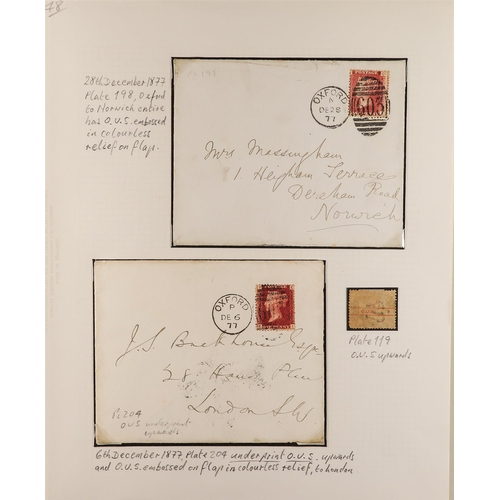 48
28th December 1877
Plate 198, Oxford
to Norwich entire
has O.U.S. embossed
in colourless
relief on flap.
OXFORD
A
DE 28
77
603
Mrs Massingham
1 Heigham Terrace
Dereham Road
Norwich
OXFORD
P
DE 6
77
J. S. Backhouse Esqr
28
London SW
Pl 204
OUS underprint
upwards
Plate 119
O.U.S upwards
6th December 1877 Plate 204 underprint O.U.S. upwards
and O.U.S. embossed on flap in colourless relief, to London.